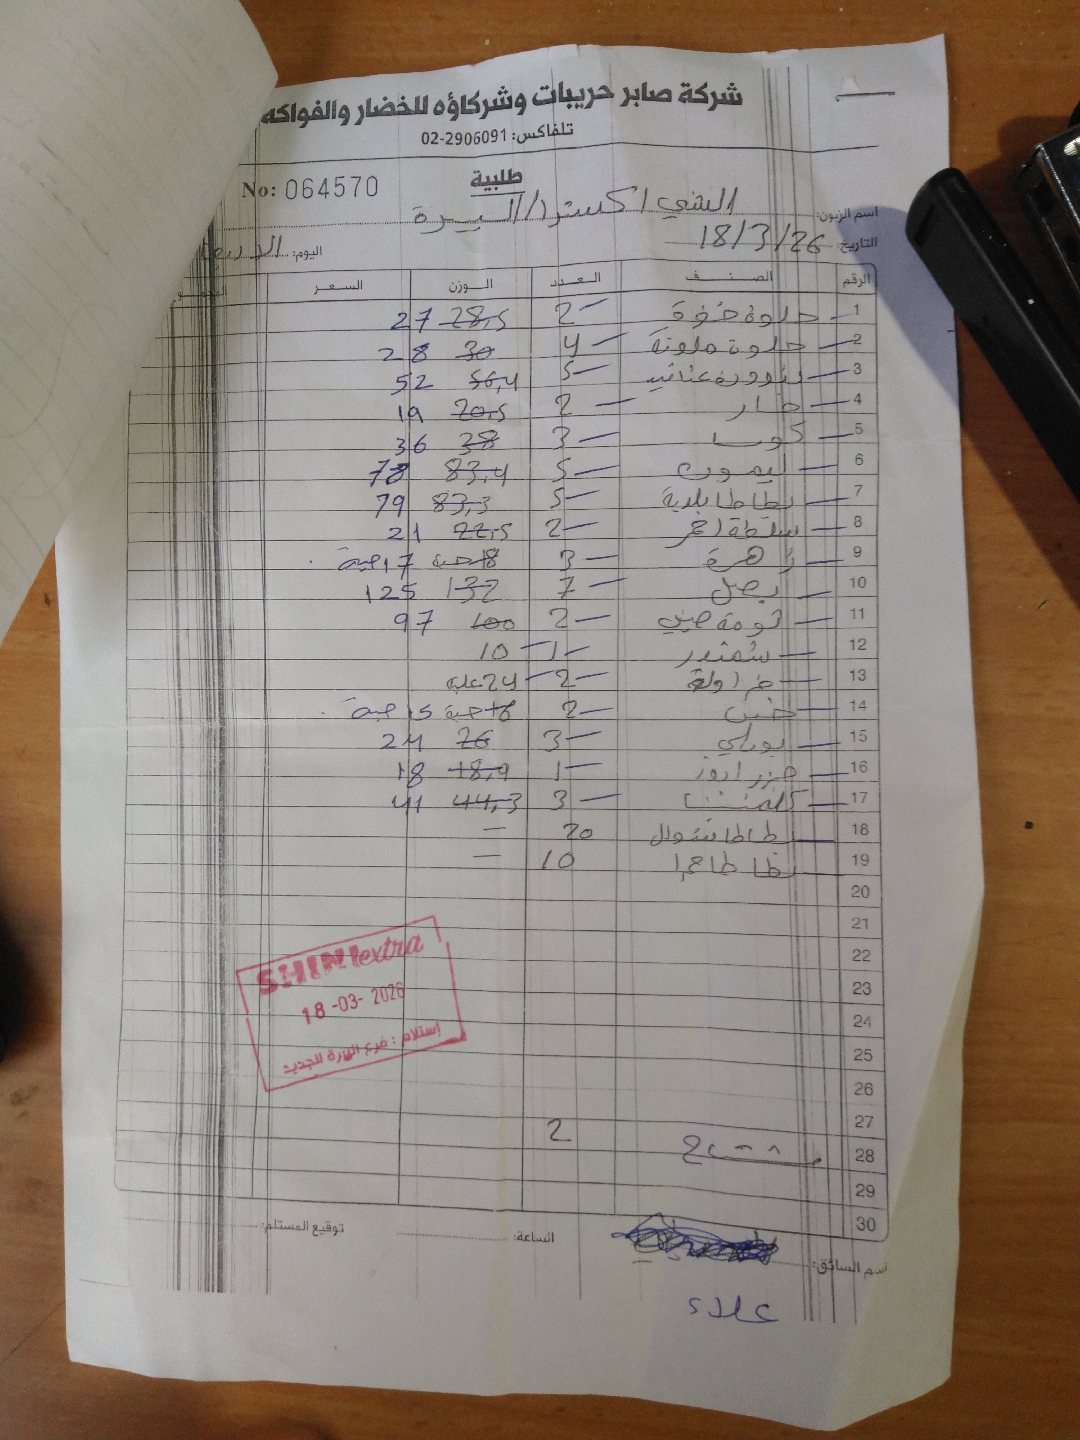 شركة صابر حريبات وشركاؤه للخضار والفواكه
تلفاكس: 02-2906091
No: 064570
طلبية
اسم الزبون: الشني اكسترا / البيرة
التاريخ: 18/3/26
اليوم: الاربعاء
الرقم الصنف العدد الوزن السعر
1 حلوة 2 28,5 27
2 حلوة ملونة 4 30 28
3 بندورة عناقيد 5 56,4 52
4 خيار 2 20,5 19
5 كوسا 3 38 36
6 ليمون 5 83,4 78
7 بطاطا بلدية 5 83,3 79
8 احمر 2 22,5 21
9 زهرة 3 18 حبة 17 حبة
10 بصل 7 132 125
11 ثومة صيني 2 100 97
12 شمندر 1 10
13 فراولة 2 24 علبة
14 خس 2 16 حبة 15 حبة
15 3 26 24
16 جزر 1 18,9 18
17 كلمنتينا 3 44,3 41
18 بطاطا شوال 20 –
19 بطاطا حمرا 10 –
20
21
22
23
24
25
26
27
28 2
29
30
SHINI extra
18-03-2026
إستلام : فرع البيرة الجديد
اسم السائق:
الساعة:
توقيع المستلم:
علاء